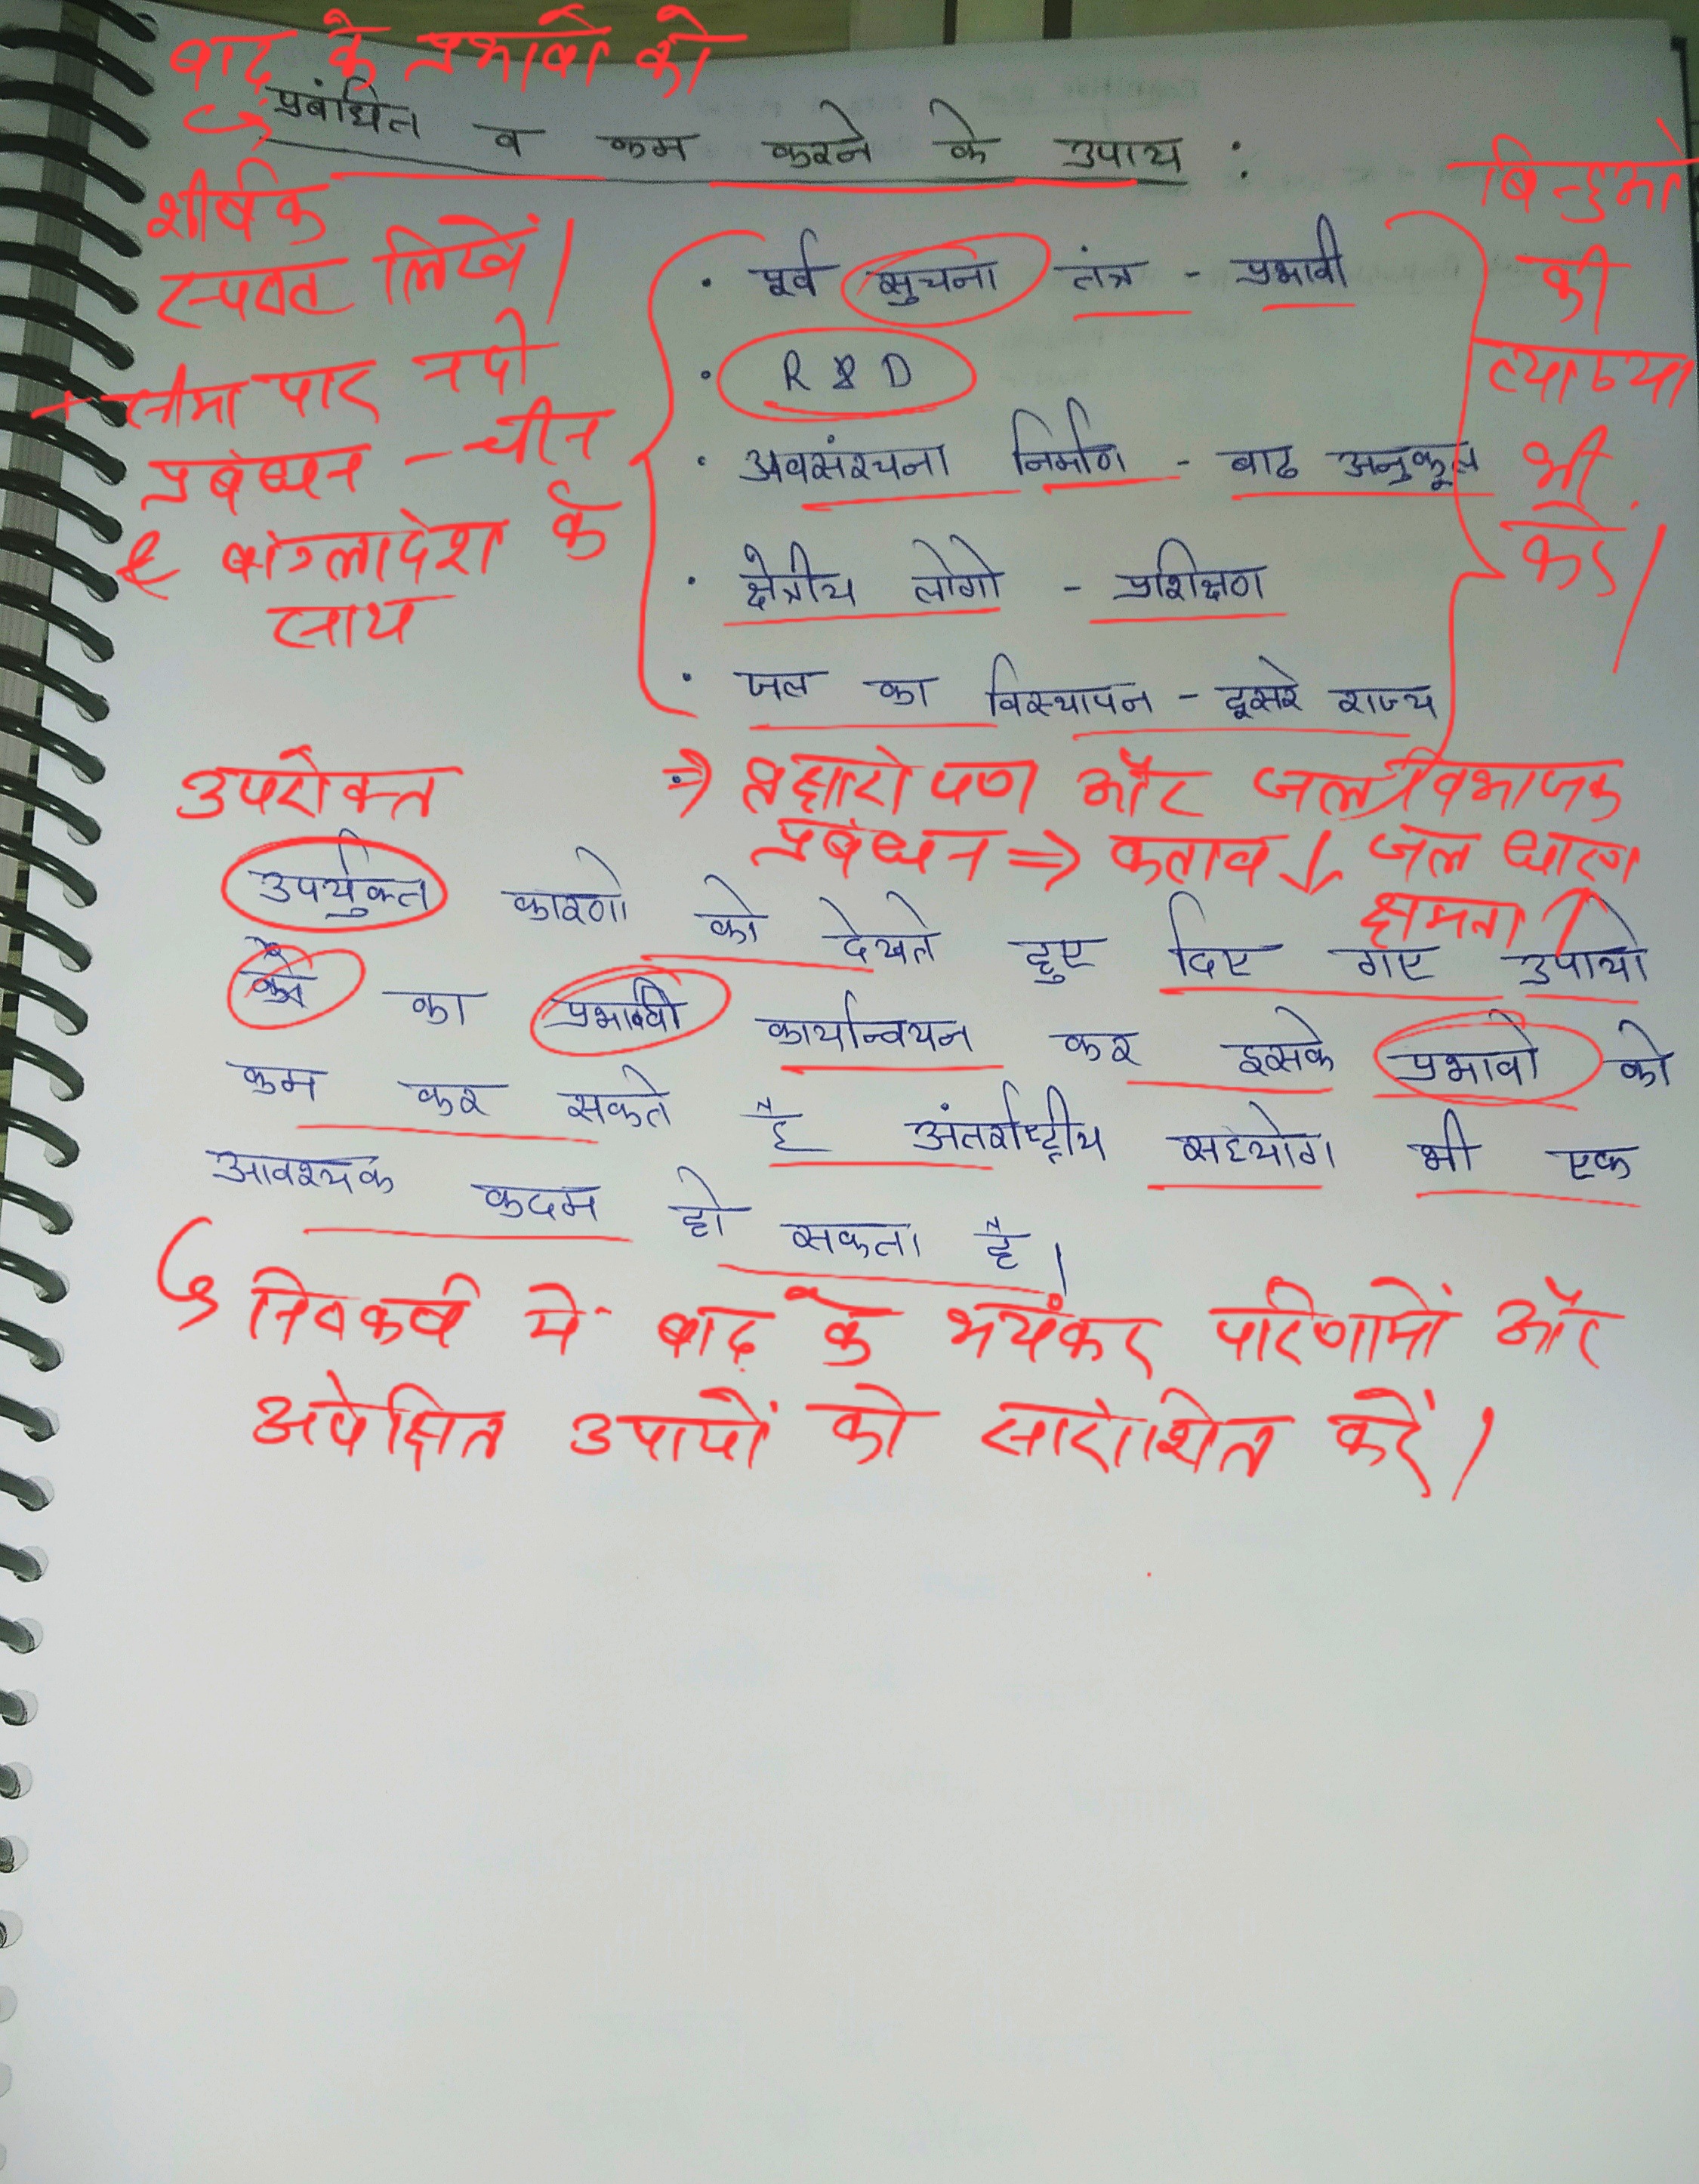 बाढ़ के प्रभावों को
प्रबंधित व कम करने के उपाय :
शीर्षक
स्पष्ट लिखें।
+ सीमा पार नदी
प्रबंधन - चीन
& बांग्लादेश के
साथ
• पूर्व सुचना तंत्र - प्रभावी
• R & D
• अवसंरचना निर्माण - बाढ अनुकूल
• क्षेत्रीय लोगो - प्रशिक्षण
• जल का विस्थापन - दूसरे राज्य
बिन्दुओं
की
व्याख्या
भी
करें।
⇒ वृक्षारोपण और जल विभाजक
प्रबंधन ⇒ कटाव ↓ जल धारण
क्षमता ↑
उपरोक्त
उपर्युक्त कारणो को देखते हुए दिए गए उपायो
का प्रभावी कार्यान्वयन कर इसके प्रभावो को
कम कर सकते है अंतर्राष्ट्रीय सहयोग भी एक
आवश्यक कदम हो सकता है।
निष्कर्ष में बाढ़ के भयंकर परिणामों और
अपेक्षित उपायों को सारांशित करें।